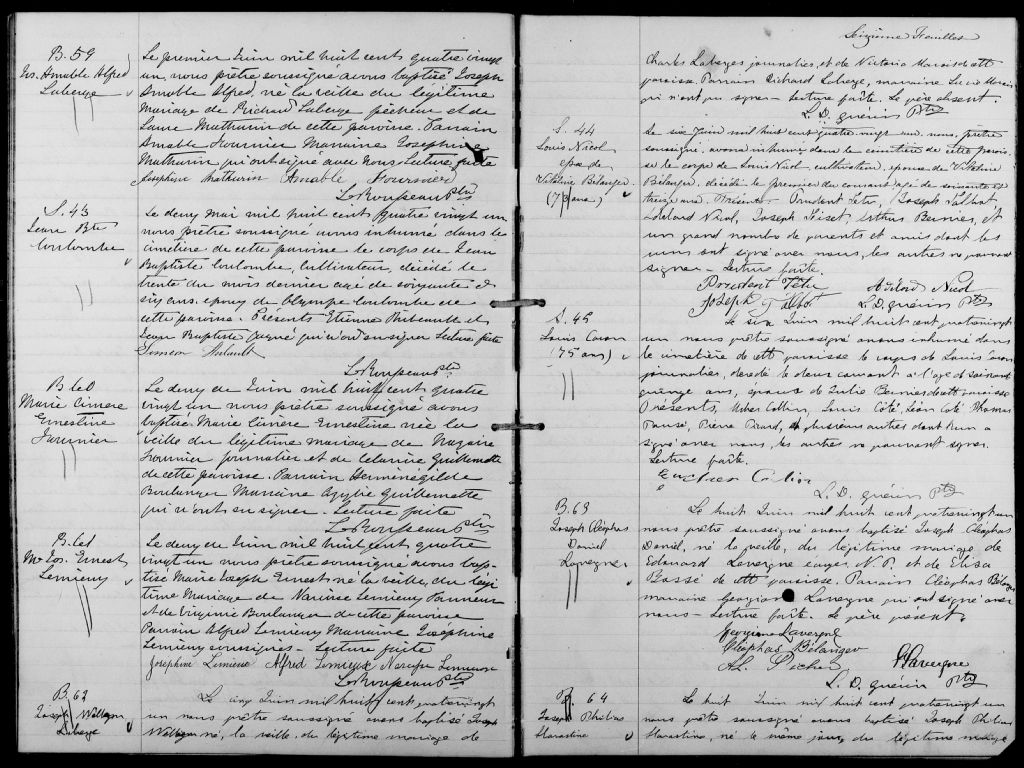 B. 59
Jos. Amable Alfred
Laberge
Le premier Juin mil huit cent quatre vingt
un, nous prêtre soussigné avons baptisé Joseph
Amable Alfred, né la veille du légitime
Mariage de Richard Laberge pêcheur et de
Laure Mathurin de cette paroisse. Parrain
Amable Fournier Marraine Josephine
Mathurin qui ont signé avec nous. Lecture faite
Josephine Mathurin Amable Fournier
Ptre
S. 43
Jean Bte
Coulombe
Le deux Mai mil huit cent quatre vingt un
nous prêtre soussigné avons inhumé dans le
cimetière de cette paroisse le corps de Jean
Baptiste Coulombe, Cultivateur, décédé le
trente du mois dernier agé de soixante et
six ans. epoux de Olympe Coulombe de
cette paroisse. Présents Etienne Thibeault et
Jean Baptiste Gagné qui n'ont su signer Lecture faite
Simeon
Ptre
B. 60
Marie
Ernestine
Fournier
Le deux de Juin mil huit cent quatre
vingt un nous prêtre soussigné avons
baptisé Marie Ernestine née la
veille du légitime mariage de Nazaire
Fournier journalier et de Célanire Guillemette
de cette paroisse. Parrain Herménégilde
Boulanger Marraine Guillemette
qui n'ont su signer. Lecture faite
Ptre
B. 61
Jos. Ernest
Lemieux
Le deux de Juin mil huit cent quatre
vingt un nous prêtre soussigné avons bap-
tisé Marie Joseph Ernest né la veille, du légi
time Mariage de Narcisse Lemieux Tanneur
et de Virginie Boulanger de cette paroisse
Parrain Alfred Lemieux Marraine Joséphine
Lemieux soussignés - Lecture faite
Josephine Lemieux Alfred Lemieux Lemieux
Ptre
B. 62
Joseph
Laberge
Le cinq Juin mil huit cent quatrevingt
un nous prêtre soussigné avons baptisé Joseph
né, la veille, du légitime mariage de
Sixième Feuillet
Charles Laberge journalier, et de Victoria Marois de cette
paroisse. Parrain Richard Laberge, marraine Lucie Marois
qui n'ont pu signer - Lecture faite. Le père absent.
L. D. Guérin Ptre
S. 44
Louis Nicol
epx de
Vitaline Bélanger
(73 ans)
Le six Juin mil huit cent quatre vingt un, nous, prêtre
soussigné, avons inhumé dans le cimetière de cette parois-
se le corps de Louis Nicol, cultivateur, epoux de Vitaline
Bélanger, décédé le premier du courant, agé de soixante et
treize ans. Présents Prudent Tétu, Joseph Talbot
Nicol, Joseph Arthur Bernier, et
un grand nombre de parents et amis dont les
uns ont signé avec nous, les autres ne pouvant
signer - Lecture faite.
Prudent Tétu Nicol
Joseph Talbot L. D. Guérin Ptre
S. 45
Louis Caron
(75 ans)
Le six Juin mil huit cent quatrevingt
un nous prêtre soussigné avons inhumé dans
le cimetière de cette paroisse le corps de Louis Caron
journalier, décédé le deux courant à l'age de soixante
quinze ans, époux de Julie Bernier de cette paroisse
Présents, Collin, Louis Coté, Léon Coté, Thomas
Pierre Picard, & plusieurs autres dont l'un a
signé avec nous, les autres ne pouvant signer.
Lecture faite.
L. D. Guérin Ptre
B. 63
Joseph Cléophas
Daniel
Lavergne
Le huit Juin mil huit cent quatrevingt un
nous prêtre soussigné avons baptisé Joseph Cléophas
Daniel, né la veille, du légitime mariage de
Edouard Lavergne N. P. et de Elisa
de cette paroisse. Parrain Cléophas Bélanger
marraine Georgiana Lavergne qui ont signé avec
nous - Lecture faite. Le père présent.
Georgiana Lavergne
Cléophas Bélanger
Lavergne
L. D. Guérin Ptre
B. 64
Joseph Philias
Le huit Juin mil huit cent quatrevingt un
nous prêtre soussigné avons baptisé Joseph Philias
né le même jour, du légitime mariage